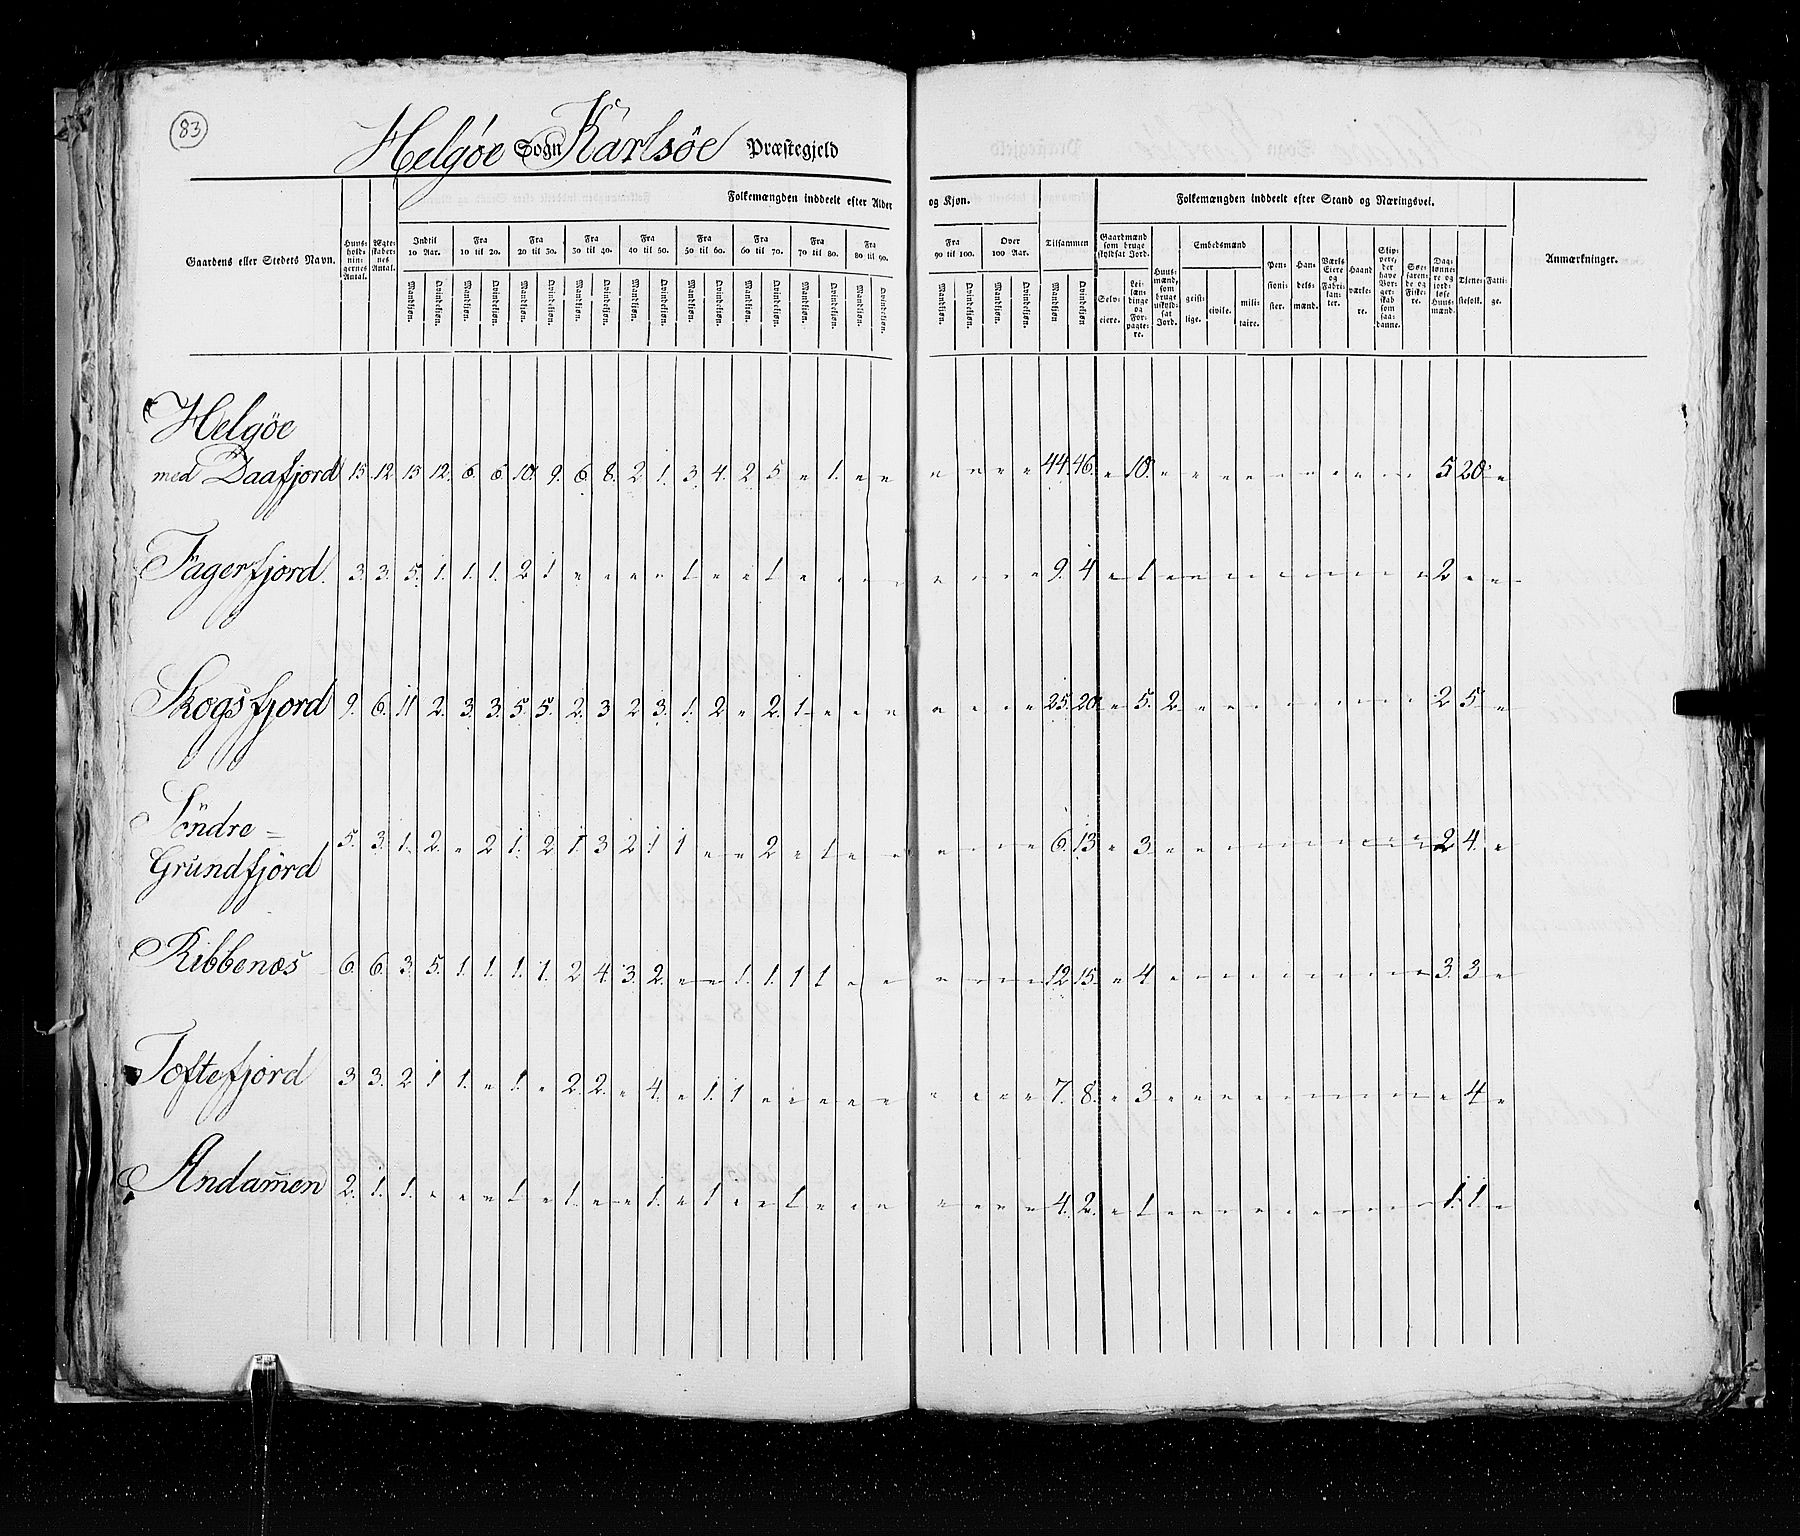 83
Helgöe Sogn Karlsöe Præstegjeld
Folkemængden inddeelt efter Alder og Kjøn. Folkemængden inddeelt efter Stand og Næringsvei.
Gaardens eller Stedets Navn. Huus-holdnin-gernes Antal. Ægte-skaber-nes Antal. Indtil 10 Aar. Fra 10 til 20. Fra 20 til 30. Fra 30 til 40. Fra 40 til 50. Fra 50 til 60. Fra 60 til 70. Fra 70 til 80. Fra 80 til 90. Fra 90 til 100. Over 100 Aar. Tilsammen Gaardmænd som bruge skyldsat Jord. Huus-mænd, som bruge uskyld-sat Jord. Embedsmænd Pen-sioni-ster. Han-dels-mænd. Værks Eiere og Fabri-kan-ter. Haand værke-re. Skip-pere, der have Bor-ger-skab som saa-danne. Søe-faren-de og Fiske-re. Dag-lønne-re og jord-løse Huus-mænd. Tjene-stefolk. Fatti-ge. Anmærkninger.
Mandkjøn. Qvindekjøn. Mandkjøn. Qvindekjøn. Mandkjøn. Qvindekjøn. Mandkjøn. Qvindekjøn. Mandkjøn. Qvindekjøn. Mandkjøn. Qvindekjøn. Mandkjøn. Qvindekjøn. Mandkjøn. Qvindekjøn. Mandkjøn. Qvindekjøn. Mandkjøn. Qvindekjøn. Mandkjøn. Qvindekjøn. Mandkjøn Qvindekjøn Selv-eiere. Lei-læn-dinge og For-pagte-re. geist-lige. civile. mili-taire.
Helgöe
med Daafjord 15. 12. 15 12. 6. 6. 10. 9. 6. 8. 2 1. 3. 4. 2 5. " 1. " " " " " " 44. 46. " 10. " " " " " " " " " " 5 20. "
Fagerfjord. 3. 3. 5. 1. 1. 1. 2 1. " " " " 1 " " 1. " " " " " " " " 9. 4. " 1. " " " " " " " " " " 2 " "
Skogsfjord 9. 6. 11 2. 3. 3. 5. 5. 2. 3 2 3. 1. 2. " 2. 1. " " " " " " " 25. 20. " 5. 2. " " " " " " " " " 2 5. "
Söndre =
Grundfjord 5. 3. 1. 2. " 2 1. 2 1. 3 2 1. 1 " " 2 " 1. " " " " " " 6. 13. " 3. " " " " " " " " " " 2 4. "
Ribbenæs 6. 6. 3. 5. 1. 1. 1. 1. 2 4. 3. 2. " " 1. 1. 1 1 " " " " " " 12. 15. " 4 " " " " " " " " " " 3. 3. "
Toftefjord 3 3. 2 1 1. " 1. " 2. 2. " 4. " 1. 1 " " " " " " " " " 7. 8. " 3 " " " " " " " " " " " 4 "
Andamen 2. 1. 1. " " " 1. " 1. " " 1. " 1. " 1. " " " " " " " " 4. 2. " 1. " " " " " " " " " " 1. 1. "